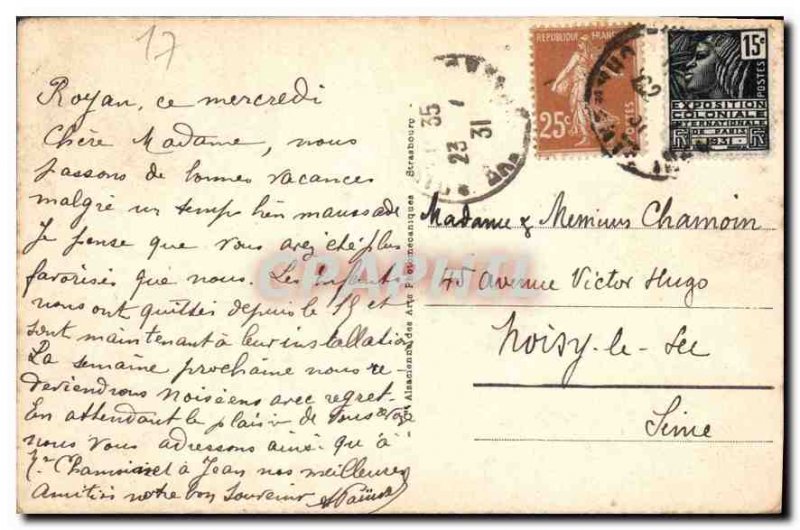 17
Royan, ce mercredi
Chère Madame, nous
passons de bonnes vacances
malgré un temps bien maussade
Je pense que vous avez été plus
favorisés que nous. Les enfants
nous ont quittés depuis le 15 et
sont maintenant à leur installation
La semaine prochaine nous re-
deviendrons Noiséens avec regret.
En attendant le plaisir de vous voir
nous vous adressons ainsi qu'à
et à Jean nos meilleures
Amitiés notre bon souvenir
Alsacienne des Arts Photomécaniques Strasbourg
REPUBLIQUE FRANC
25c
POSTES
15c
POSTES
EXPOSITION
COLONIALE
INTERNATIONALE
DE PARIS
1931
35
23
31
Madame & Messieurs Chamoin
45 Avenue Victor Hugo
Noisy-le-Sec
Seine
CPAPHIL